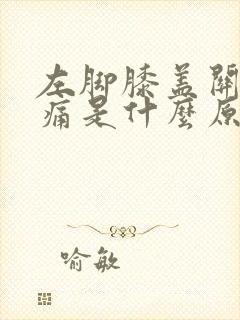 左脚膝盖關
痛是什麼原
喻敏